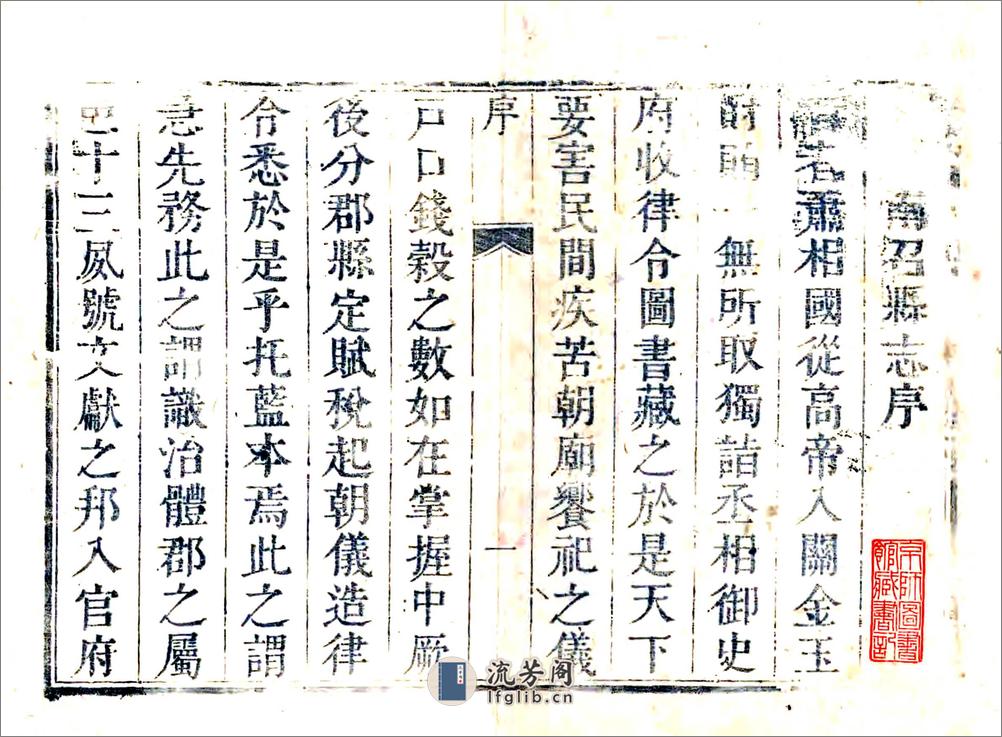 南召縣志序
昔者蕭相國從高帝入關金玉
財 無所取獨詣丞相御史
府收律令圖書藏之於是天下
要害民間疾苦朝廟饗祀之儀
序
一
戸口錢穀之數如在掌握中厥
後分郡縣定賦稅起朝儀造律
令悉於是乎托藍本焉此之謂
急先務此之謂識治體郡之屬
邑十三夙號文獻之邦入官府
京師圖書
館藏書記
流芳阁
lfglib.cn